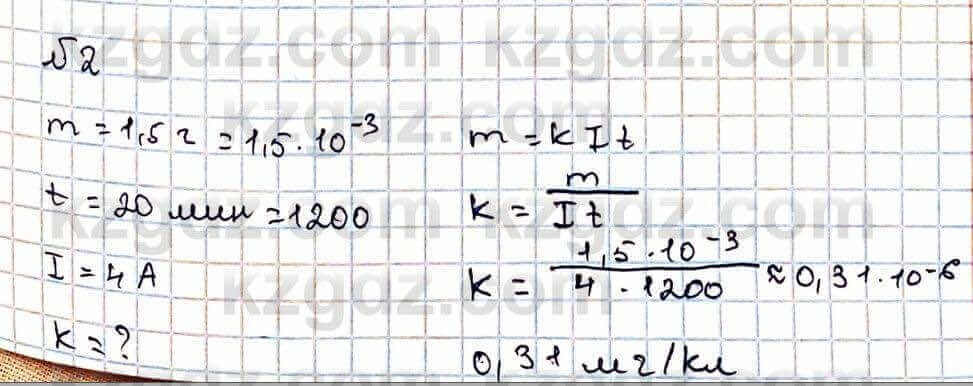 №2
m = 1,5 г = 1,5 · 10⁻³
t = 20 мин = 1200
I = 4 А
k = ?
m = k I t
k = m / I t
k = 1,5 · 10⁻³ / 4 · 1200 ≈ 0,31 · 10⁻⁶
0,31 мг/кл
kzgdz.com kzgdz.com
kzgdz.com kzgdz.com
kzgdz.com kzgdz.com
kzgdz.com kzgdz.com